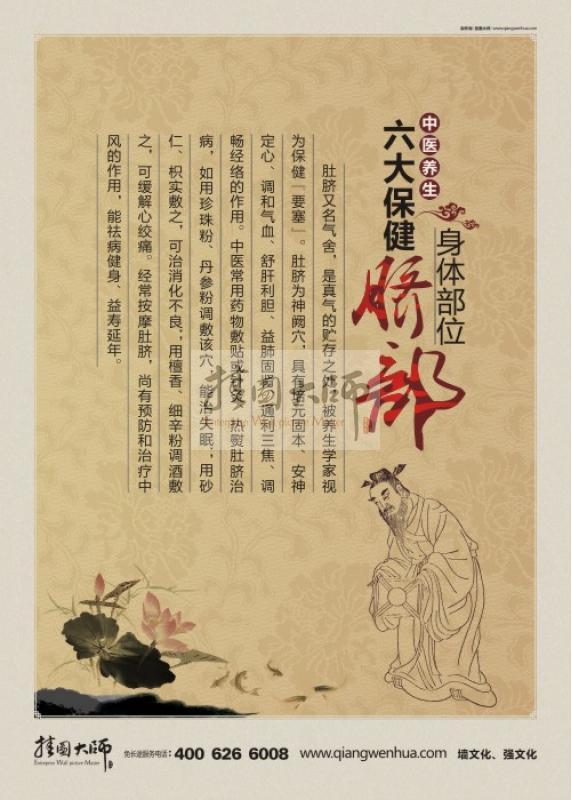 www.qiangwenhua.com
中医养生
六大保健
身体部位
脐部
肚脐又名气舍，是真气的贮存之处，被养生学家视
为保健『要塞』。肚脐为神阙穴，具有培元固本、安神
定心、调和气血、舒肝利胆、益肺固肾、通利三焦、调
畅经络的作用。中医常用药物敷贴或针灸、热熨肚脐治
病，如用珍珠粉、丹参粉调敷该穴，能治失眠；用砂
仁、枳实敷之，可治消化不良；用檀香、细辛粉调酒敷
之，可缓解心绞痛。经常按摩肚脐，尚有预防和治疗中
风的作用，能祛病健身、益寿延年。
挂图大师
Enterprise Wall picture Master
挂图大师
Enterprise Wall picture Master
免长途服务电话：400 626 6008 www.qiangwenhua.com 墙文化、强文化